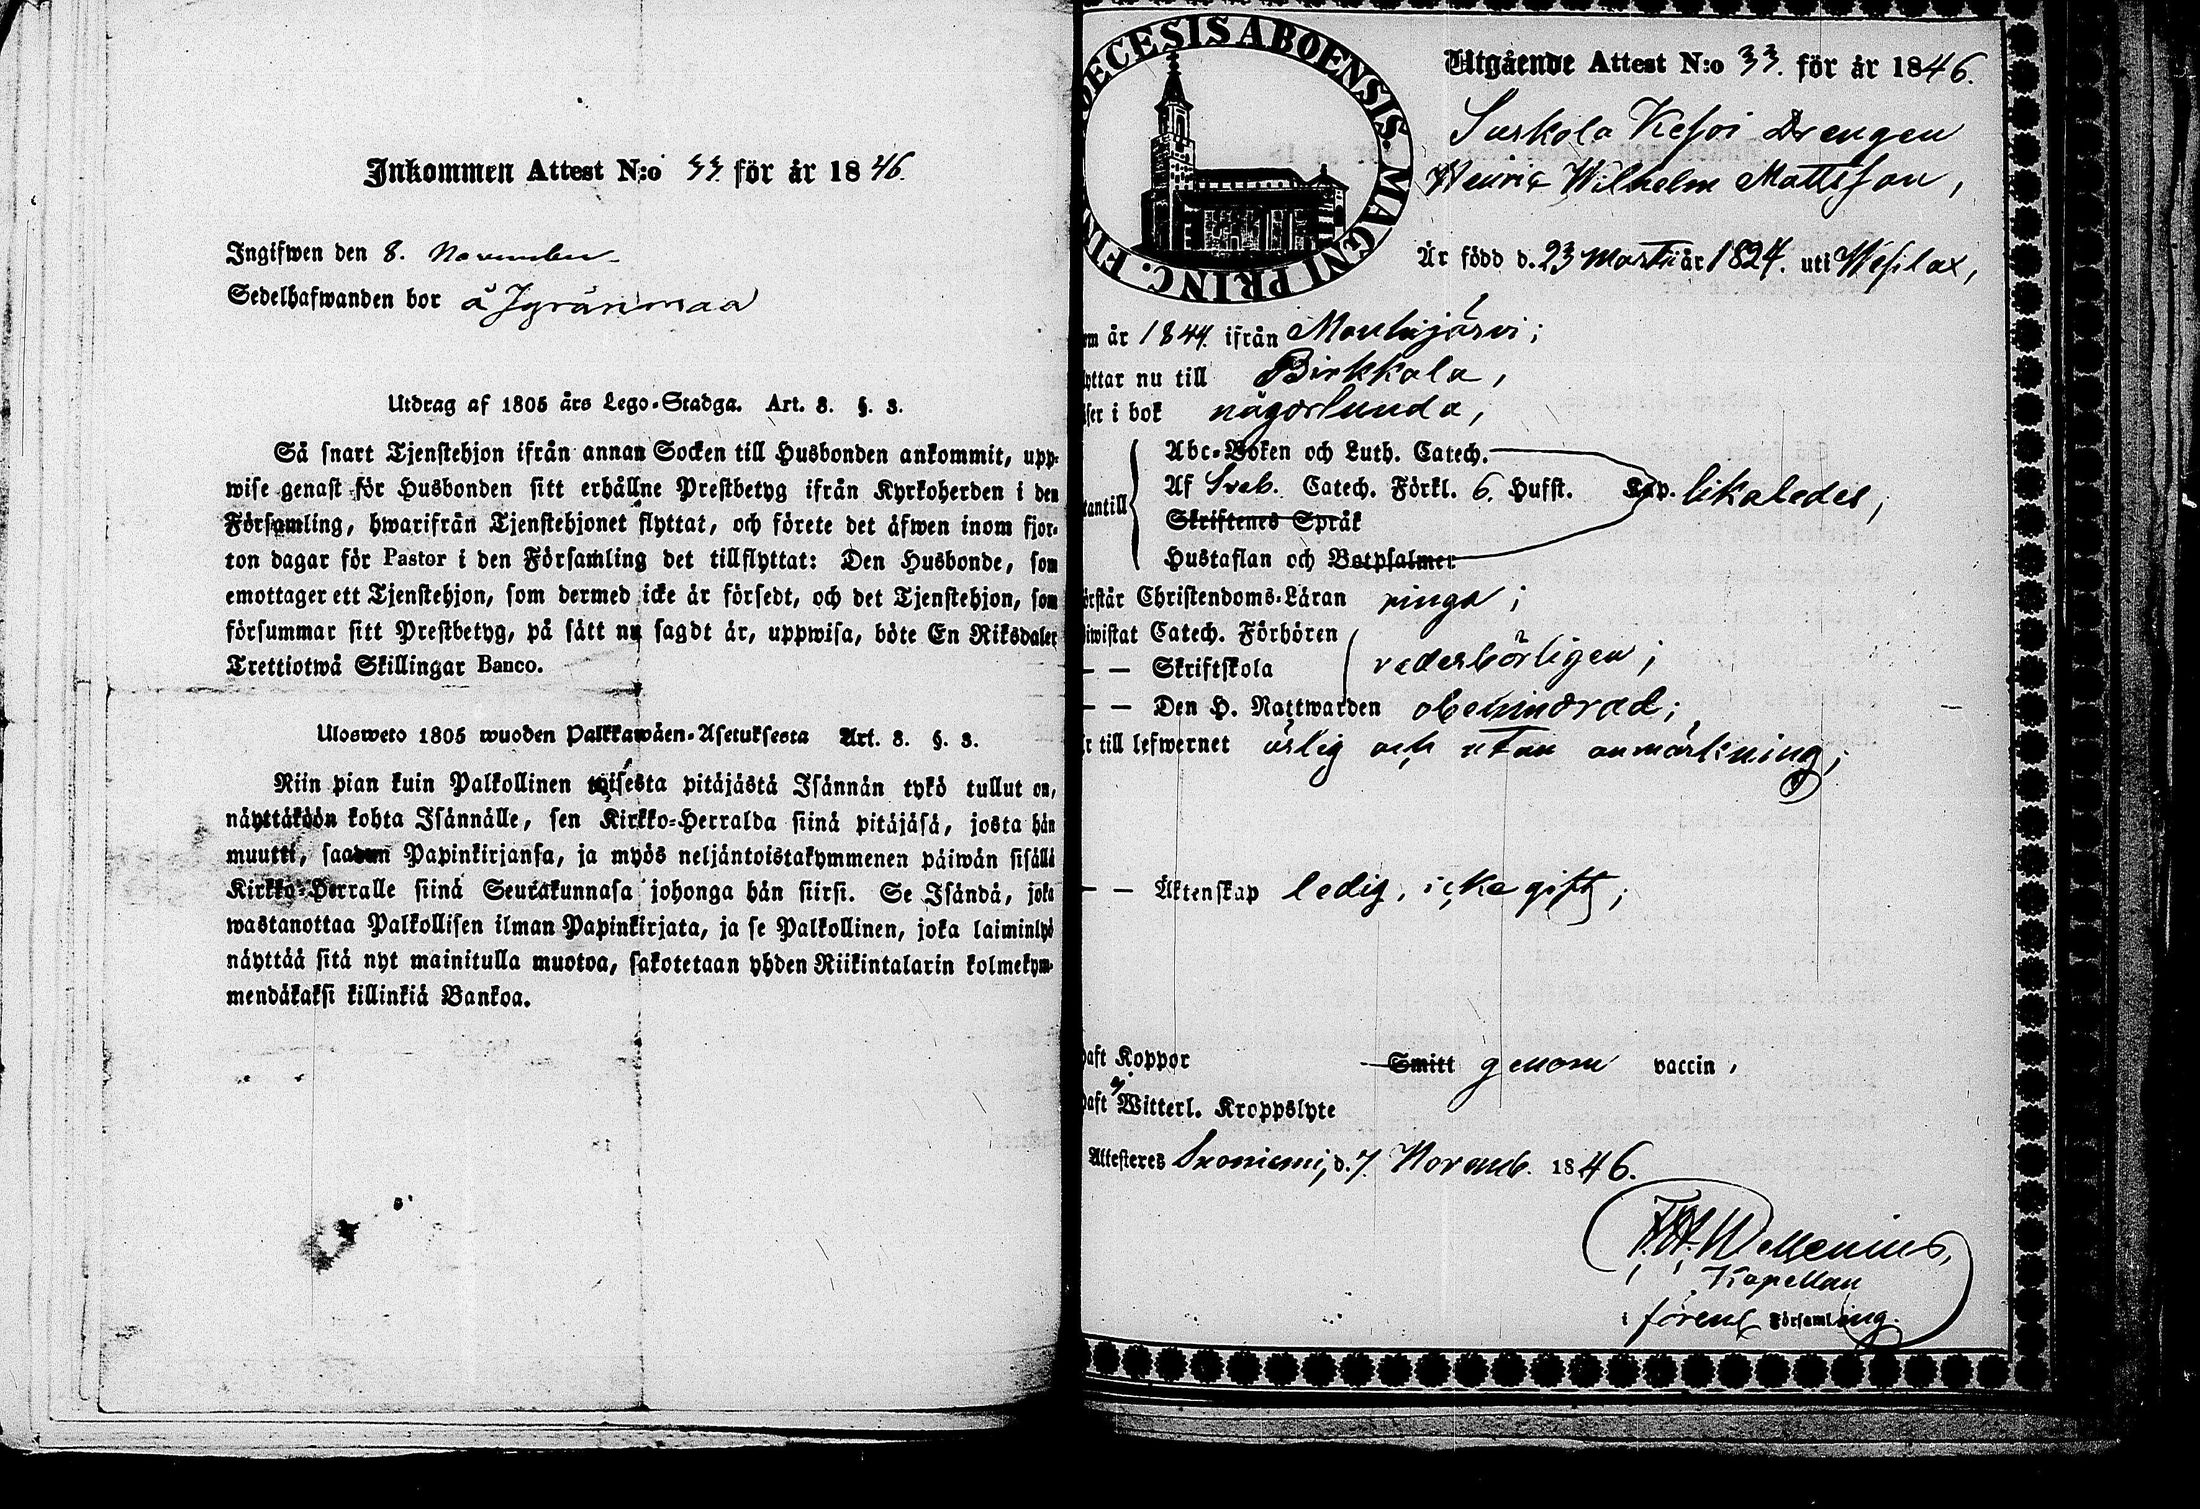 Inkommen Attest N:o 33. för år 1846.
Ingifwen den 8. November
Sedelhafwanden bor å
Utdrag af 1805 års Lego-Stadga. Art. 8. §. 3.
Så snart Tjenstehjon ifrån annan Socken till Husbonden ankommit, upp-
wise genast för Husbonden sitt erhållne Prestbetyg ifrån Kyrkoherden i den
Församling, hwarifrån Tjenstehjonet flyttat, och förete det äfwen inom fjor-
ton dagar för Pastor i den Församling det tillflyttat: Den Husbonde, som
emottager ett Tjenstehjon, som dermed icke är försedt, och det Tjenstehjon, som
försummar sitt Prestbetyg, på sätt nu sagdt är, uppwisa, böte En Riksdaler
Trettiotwå Skillingar Banco.
Ulosweto 1805 wuoden Palkkawäen-Asetuksesta Art. 8. §. 3.
Niin pian kuin Palkollinen toisesta pitäjästä Isännän tykö tullut on,
näyttäköön kohta Isännälle, sen Kirkko-Herralda siinä pitäjäsä, josta hän
muutti, saadun Papinkirjansa, ja myös neljäntoistakymmenen päiwän sisällä
Kirkko-Herralle siinä Seurakunnasa johonga hän siirsi. Se Isändä, joka
wastanottaa Palkollisen ilman Papinkirjata, ja se Palkollinen, joka laiminlyö
näyttää sitä nyt mainitulla muotoa, sakotetaan yhden Riikintalarin kolmekym-
mendäkaksi killinkiä Bankoa.
DECESIS ABOENSIS. MAGNI PRINC. FIN
Utgående Attest N:o 33. för år 1846.
Suskola Drengen
Henric Wilhelm Mattsson,
Är född d. 23 Martii år 1824. uti Wesilax,
om år 1844. ifrån Mouhijärvi;
yttar nu till Birkkala,
äser i bok någorlunda,
utantill
Abc-Boken och Luth. Catech.
Af Sveb. Catech. Förkl. 6. Hufst. Cap. likaledes,
Skriftenes Språk
Hustaflan och Botpsalmer
örstår Christendoms-Läran ringa;
iwistat Catech. Förhören
— — Skriftskola vederbörligen;
— — Den H. Nattwarden obehindrad;
r till lefwernet ärlig och utan anmärkning;
— — Äktenskap ledig, icke gift;
haft Koppor Smitt genom vaccin,
haft ej Witterl. Kroppslyte
Attesteres d. 7. Novemb. 1846.
Kapellan
i förenl Församling.